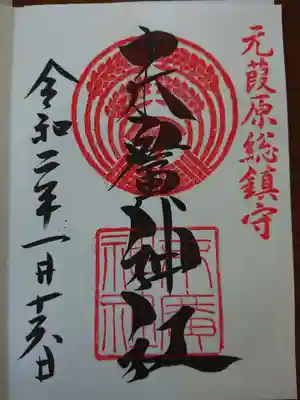 元葭原総鎮守
末廣神社
末廣
神社
令和二年一月十六日